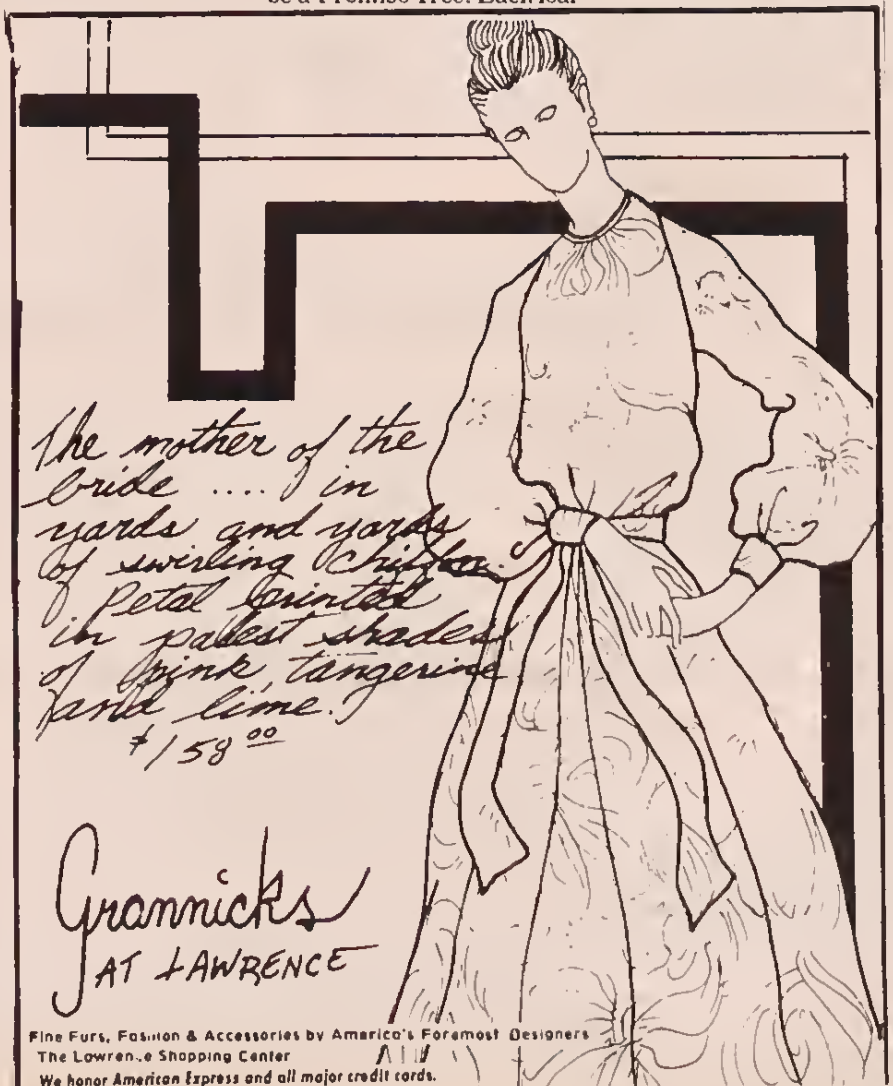 The mother of the
bride .... in
yards and yards
of swirling chiffon
Petal printed
in palest shades
of pink, tangerine
and lime.
$158.00
Grannicks
AT LAWRENCE
Fine Furs, Fashion & Accessories by America's Foremost Designers
The Lawrence Shopping Center
We honor American Express and all major credit cards.